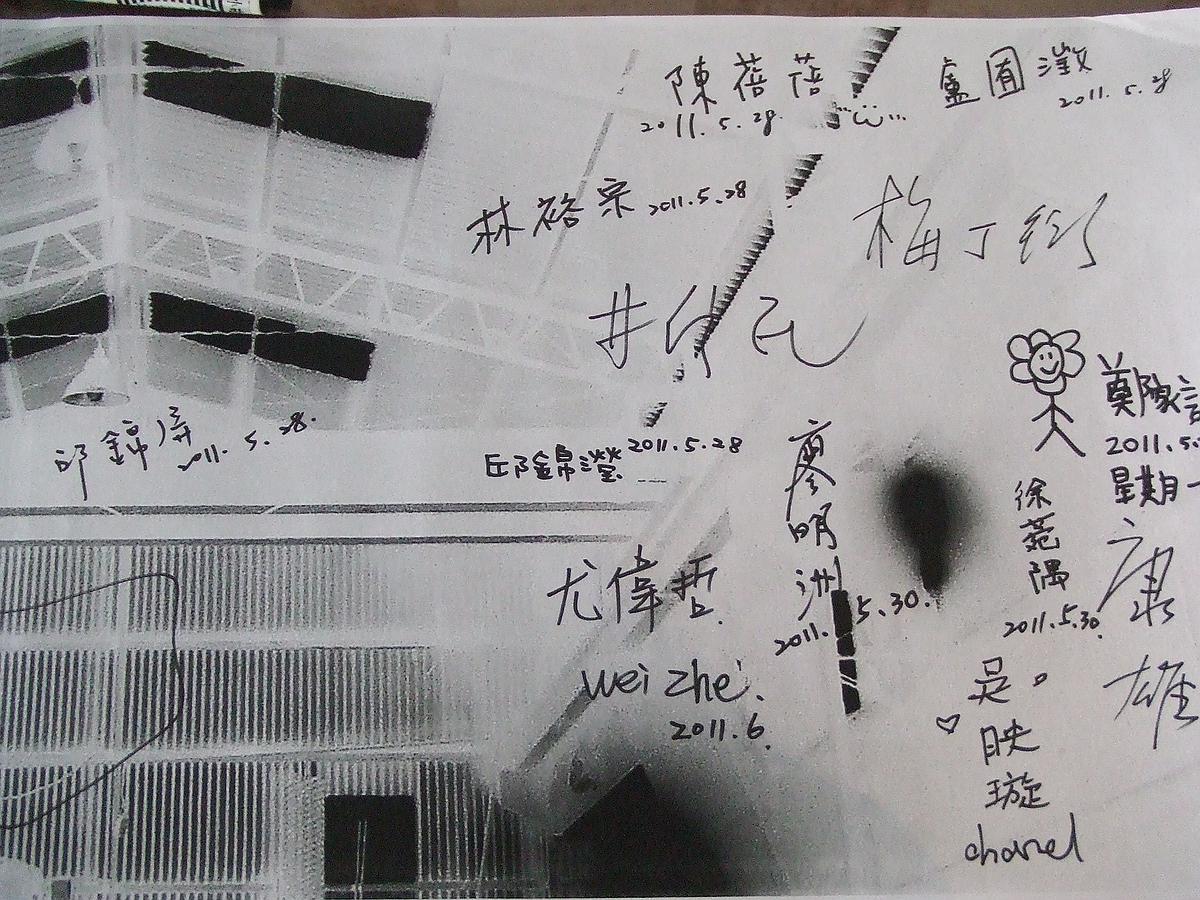 陳蓓蓓
2011.5.28
盧囿澂
2011.5.28
林裕宗 2011.5.28
梅丁衍
邱錦屏
2011.5.28.
邱錦瀅 2011.5.28
廖明洲
2011.5.30.
鄭
2011.5.
星期一
徐菀隅
2011.5.30.
尤偉哲.
wei zhe.
2011.6.
康
雄
吳映璇
chanel